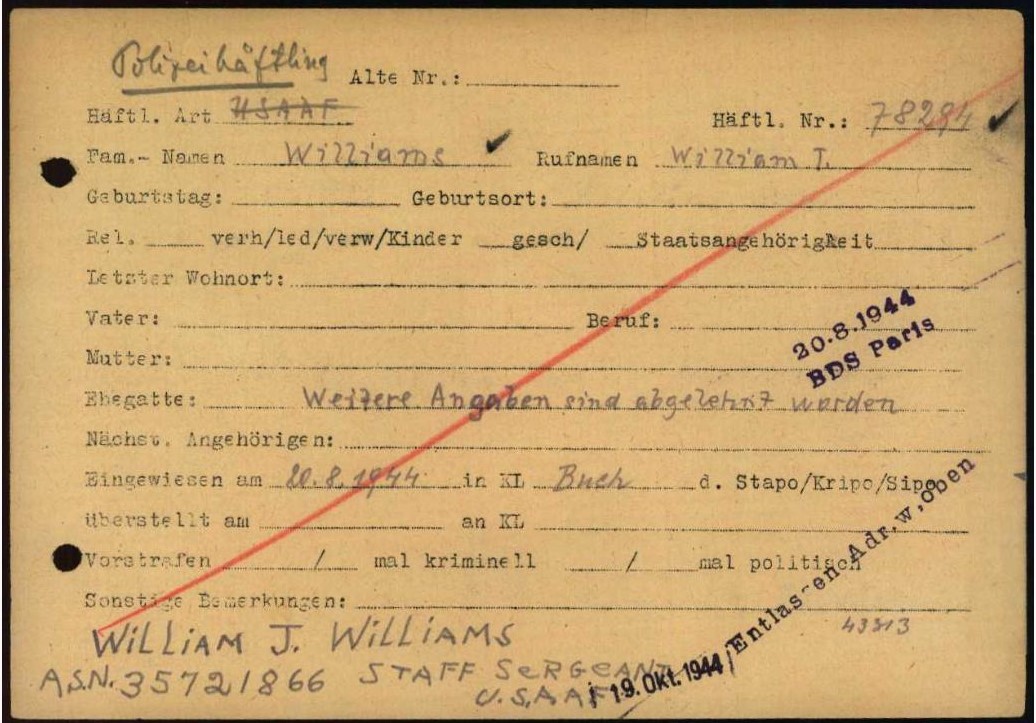 Polizeihäftling Alte Nr.:
Häftl. Art USAAF Häftl. Nr.: 78294
Fam.- Namen Williams Rufnamen William J.
Geburtstag: Geburtsort:
Rel. verh/led/verw/Kinder gesch/ Staatsangehörigkeit
Letzter Wohnort:
Vater: Beruf:
20.8.1944
BDS Paris
Mutter:
Ehegatte: Weitere Angaben sind abgelehnt worden
Nächst. Angehörigen:
Eingewiesen am 20.8.1944 in KL Buch d. Stapo/Kripo/Sipo
überstellt am an KL
Vorstrafen / mal kriminell / mal politisch
Sonstige Bemerkungen:
19. Okt. 1944 / Entlassen Adr.w,oben
43313
WILLIAM J. WILLIAMS
A.S.N. 35721866 STAFF SERGEANT
U.S.AAF